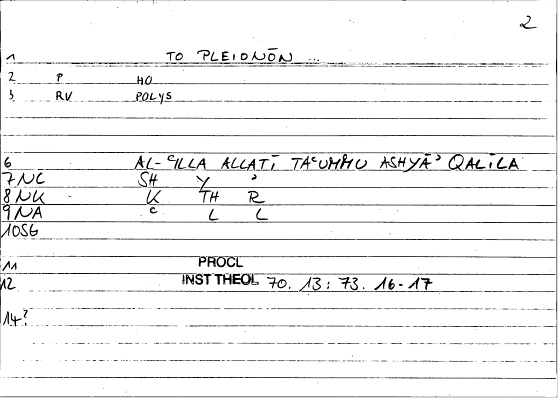 2
1 TO PLEIONŌN ...
2 P HO
3 RV POLYS
6 AL-ᶜILLA ALLATĪ TAᶜUMMU ASHYĀʾ QALĪLA
7NC SH Y ʾ
8NK K TH R
9NA ᶜ L L
10SG
11 PROCL
12 INST THEOL 70. 13 : 73. 16-17
14?